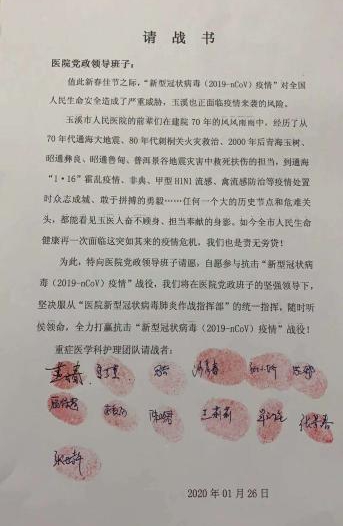 请战书
医院党政领导班子：
值此新春佳节之际，“新型冠状病毒（2019-nCoV）疫情”对全
国人民生命安全造成了严重威胁，玉溪也正面临疫情来袭的风险。
玉溪市人民医院的前辈们在建院 70 年的风风雨雨中，经历了从
70 年代通海大地震、80 年代刺桐关火灾救治、2000 年后青海玉树、
昭通彝良、昭通鲁甸、普洱景谷地震灾害中救死扶伤的担当，到通海
“1·16”霍乱疫情、非典、甲型 H1N1 流感、禽流感防治等疫情处置
时众志成城、敢于拼搏的勇毅……任何一个大的历史节点和危难关
头，都能看见玉医人奋不顾身、担当奉献的身影。如今全市人民生命
健康再一次面临这突如其来的疫情危机，我们也是责无旁贷！
为此，特向医院党政领导班子请愿，自愿参与抗击“新型冠状病
毒（2019-nCoV）疫情”战役，我们将在医院党政班子的坚强领导下，
坚决服从“医院新型冠状病毒肺炎作战指挥部”的统一指挥，随时听
侯领命，全力打赢抗击“新型冠状病毒（2019-nCoV）疫情”战役！
重症医学科护理团队请战者：
2020 年 01 月 26 日